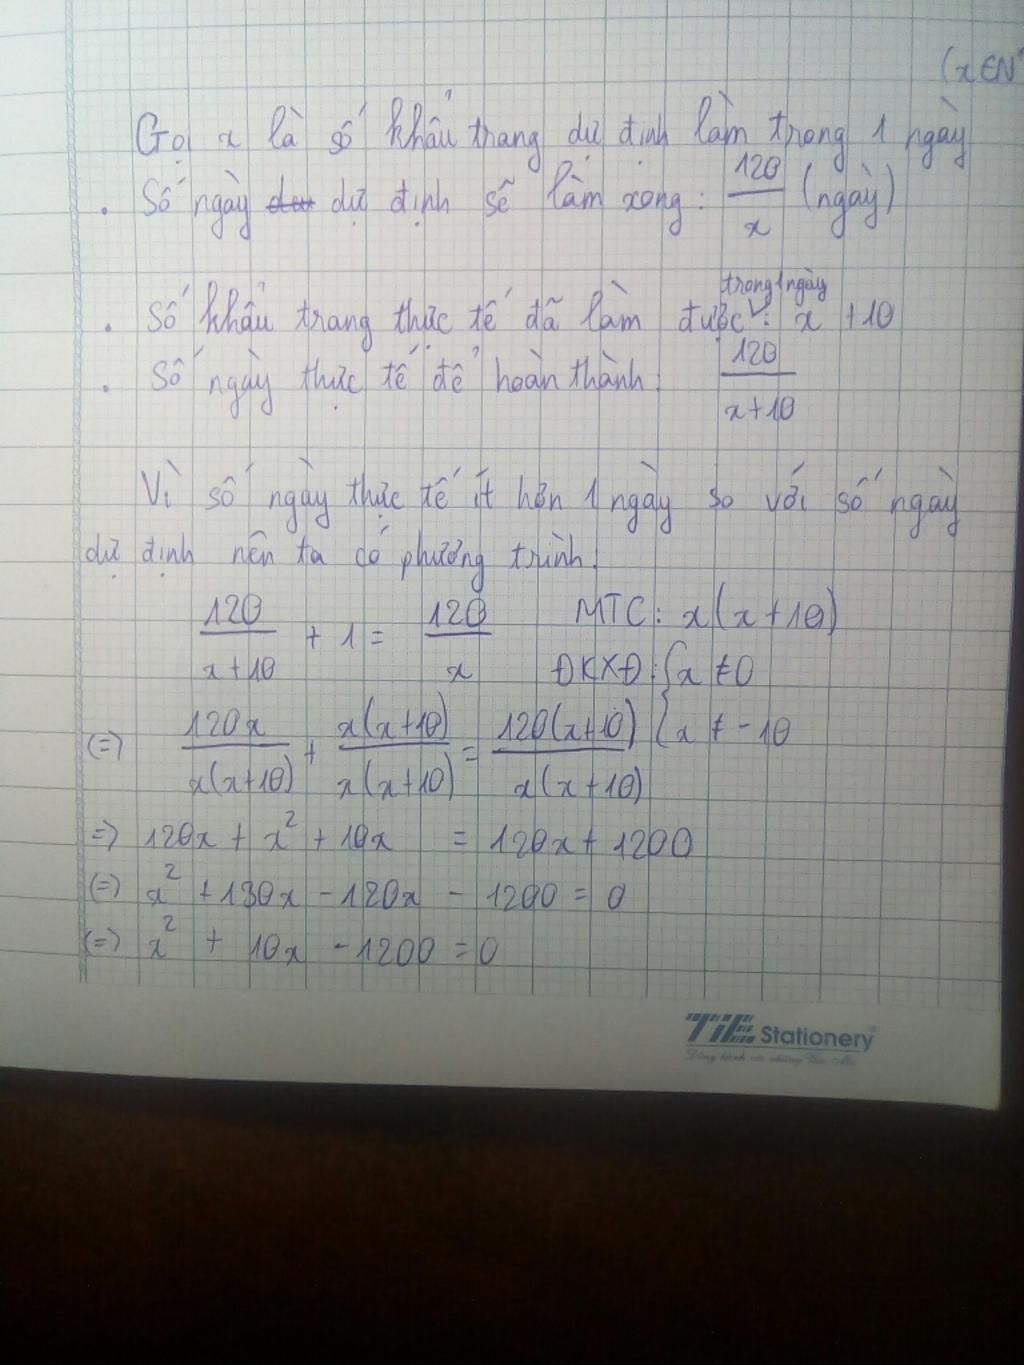 (x ∈ N*
Gọi x là số khẩu trang dự định làm trong 1 ngày
. Số ngày dự định sẽ làm xong: 120/x (ngày)
trong 1 ngày
. Số khẩu trang thực tế đã làm được ˅: x + 10
. Số ngày thực tế để hoàn thành: 120/(x+10)
Vì số ngày thực tế ít hơn 1 ngày so với số ngày
dự định nên ta có phương trình:
120/(x+10) + 1 = 120/x MTC: x(x+10)
ĐKXĐ: { x ≠ 0
(=) 120x/x(x+10) + x(x+10)/x(x+10) = 120(x+10)/x(x+10) { x ≠ -10
=) 120x + x² + 10x = 120x + 1200
(=) x² + 130x - 120x - 1200 = 0
(=) x² + 10x - 1200 = 0
TiE Stationery